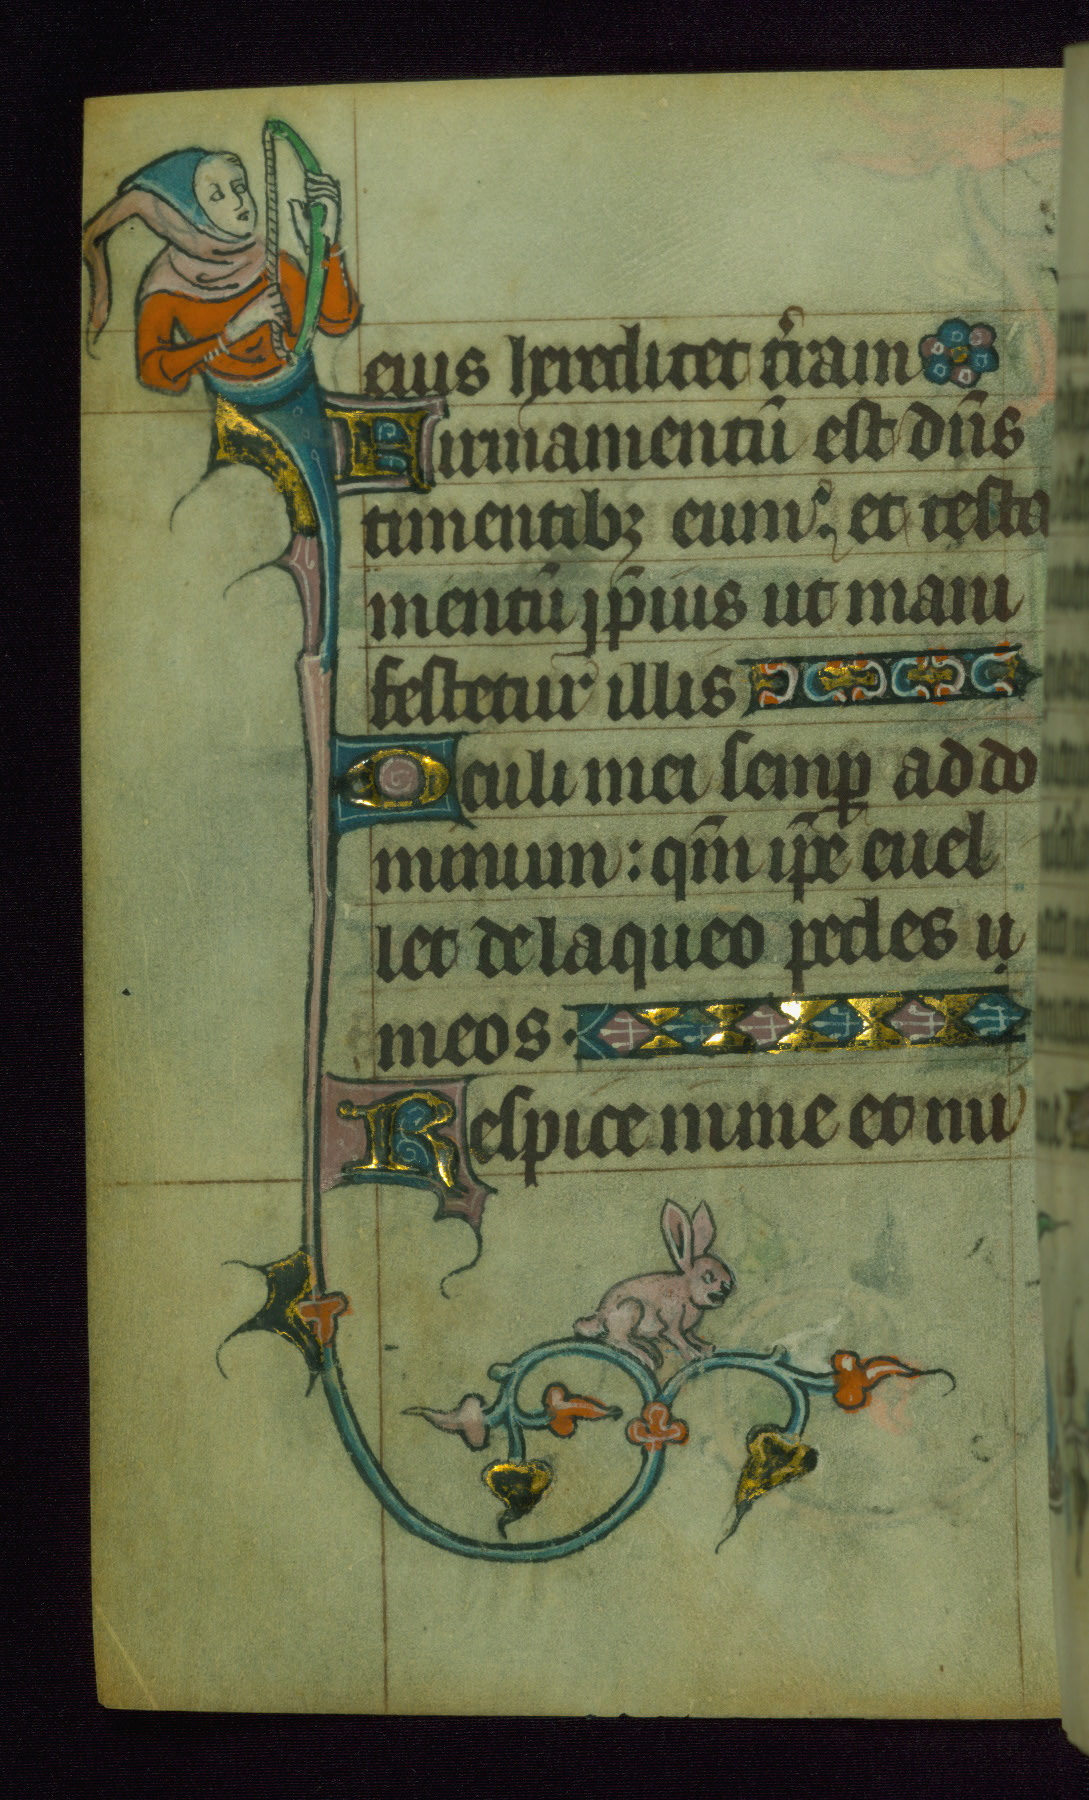 eius hereditet t̄ram
Firmamentū est dn̄s
timentibꝫ eum: et testa
mentū ip̄ius ut mani
festetur illis
Oculi mei semꝑ ad do
minum: qm̄ ip̄e euel
let de laqueo pedes
meos.
Respice in me et mi